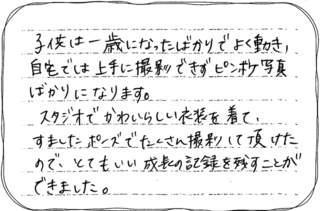 子供は一歳になったばかりでよく動き、
自宅では上手に撮影できずピンボケ写真
ばかりになります。
スタジオでかわいらしい衣装を着て、
すましたポーズでたくさん撮影して頂けた
ので、とてもいい成長の記録を残すことが
できました。